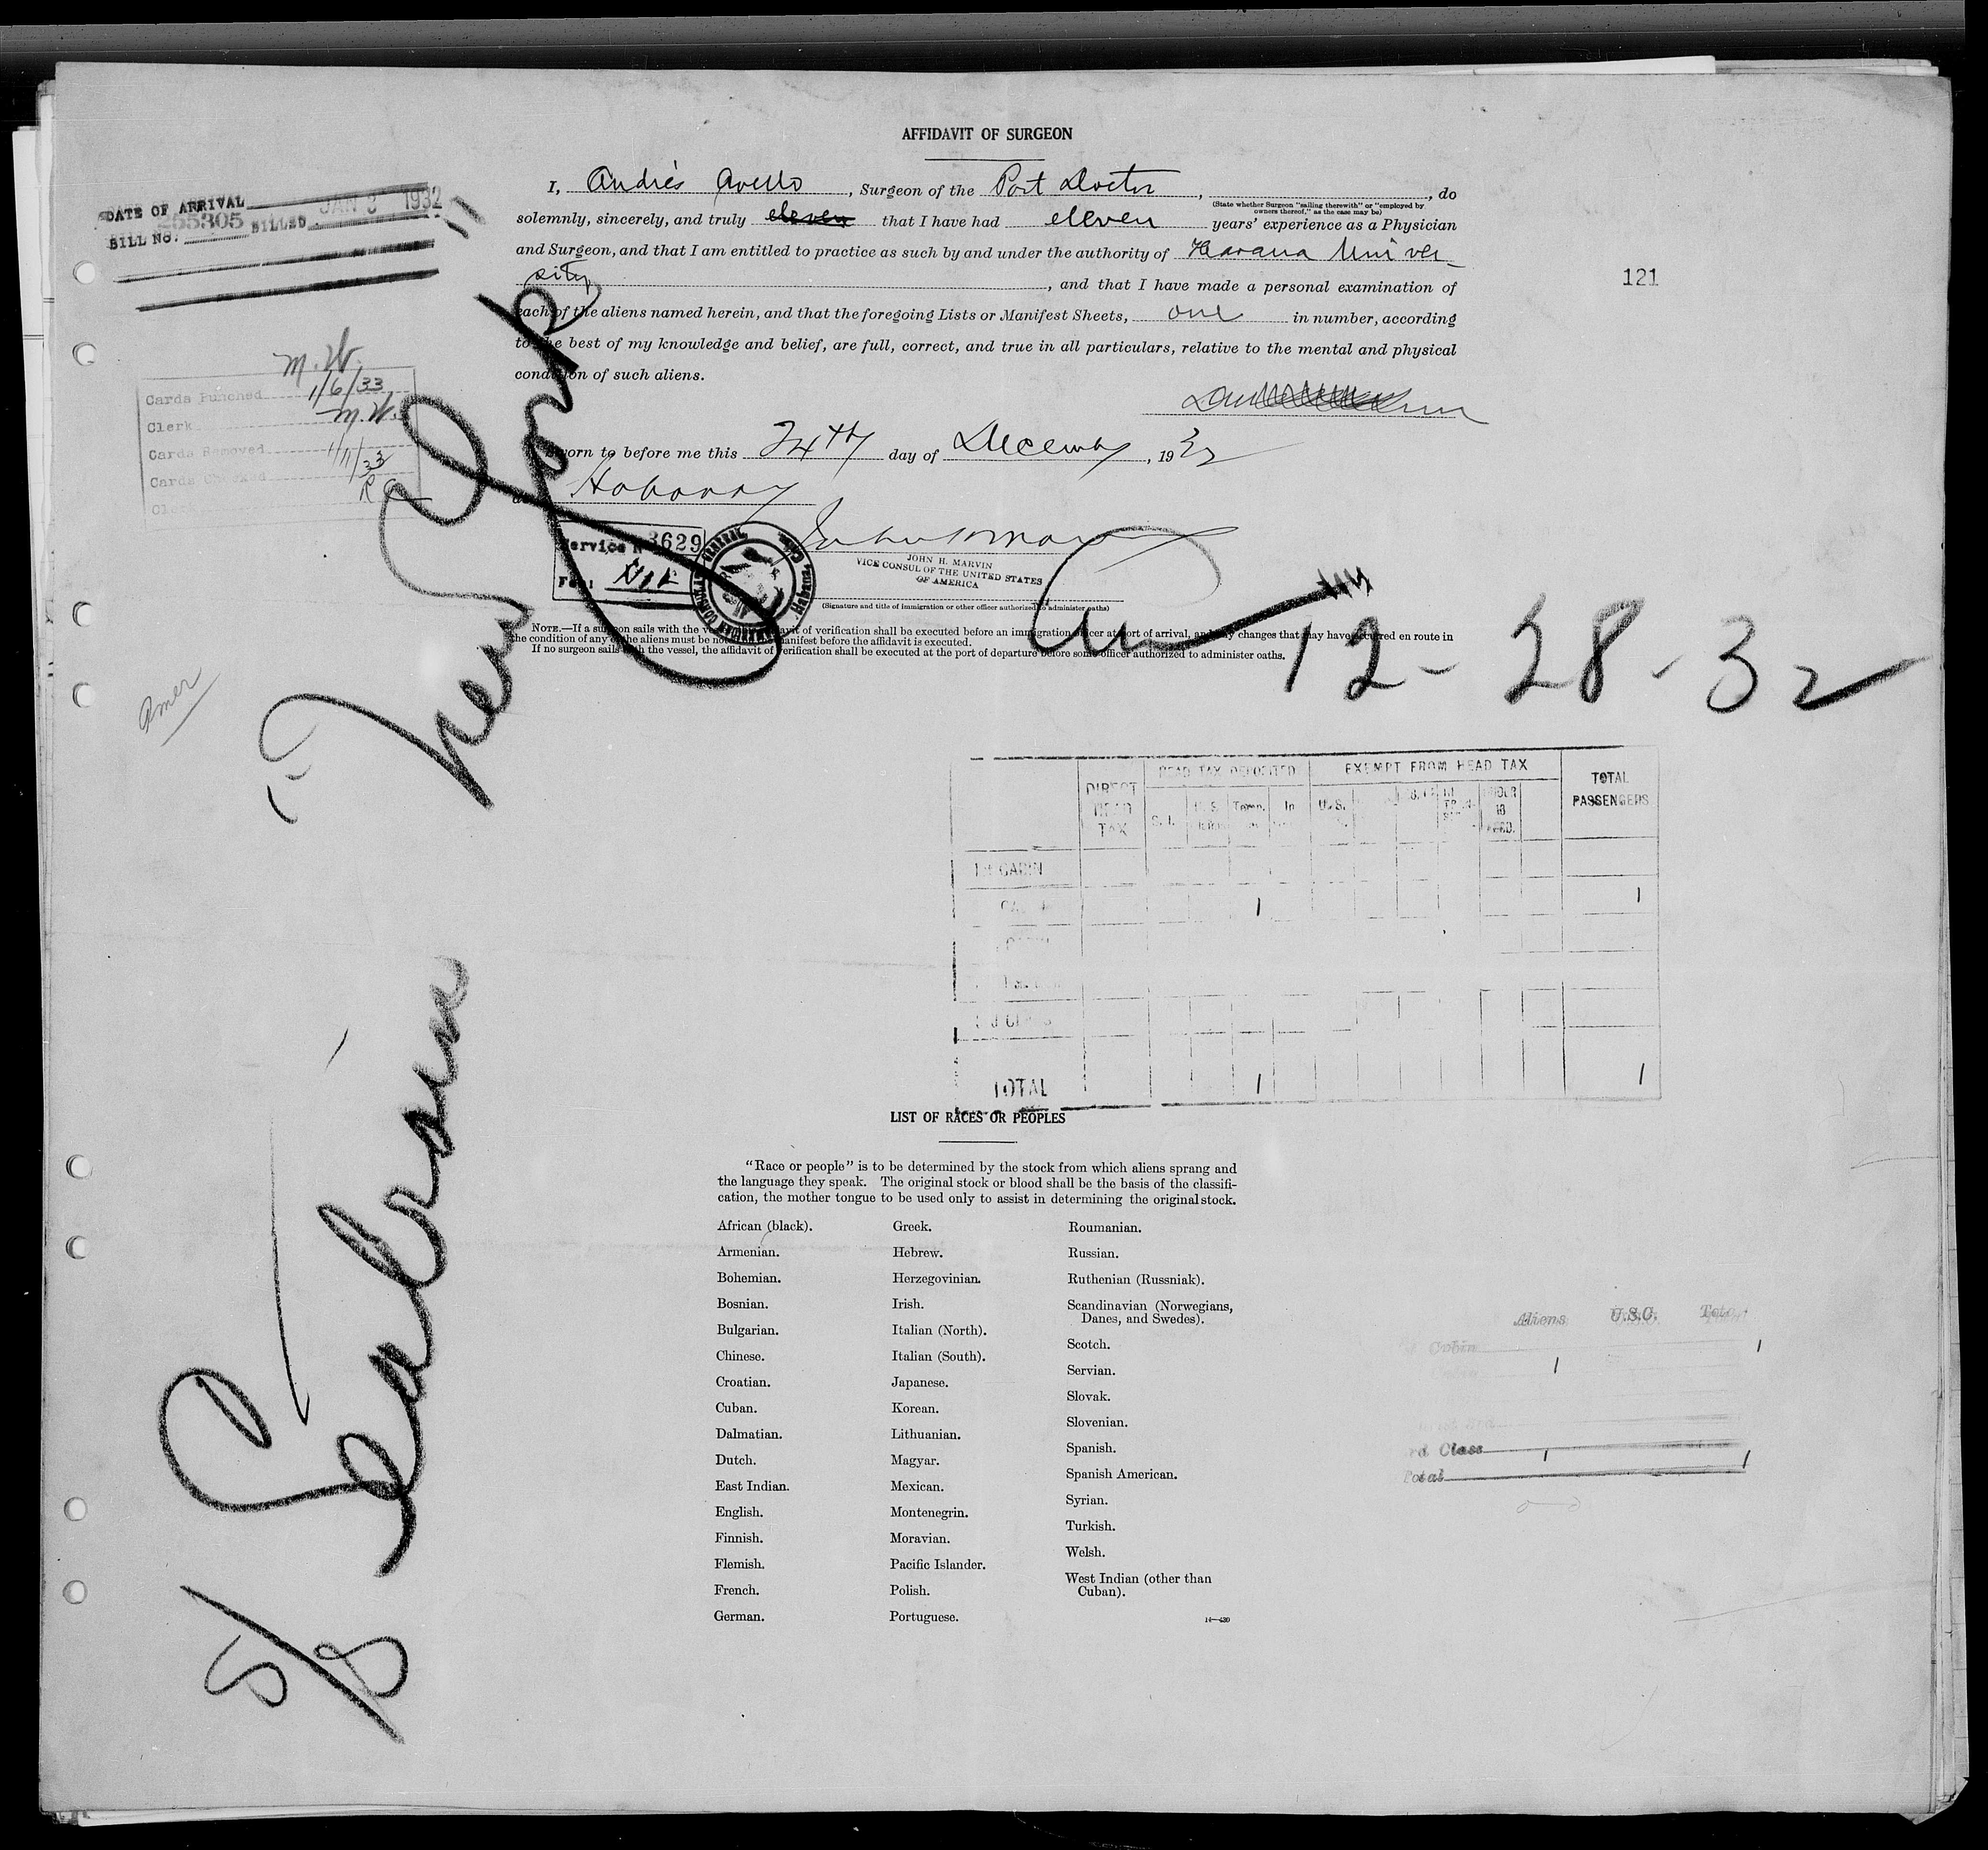 AFFIDAVIT OF SURGEON
I, Andrés Avello, Surgeon of the Port Doctor, , do
(State whether Surgeon "sailing therewith" or "employed by
owners thereof," as the case may be)
solemnly, sincerely, and truly eleven that I have had eleven years' experience as a Physician
and Surgeon, and that I am entitled to practice as such by and under the authority of Havana Univer-
sity, and that I have made a personal examination of
each of the aliens named herein, and that the foregoing Lists or Manifest Sheets, one in number, according
to the best of my knowledge and belief, are full, correct, and true in all particulars, relative to the mental and physical
condition of such aliens.
Sworn to before me this 24th day of December, 1932
at
JOHN H. MARVIN
VICE CONSUL OF THE UNITED STATES
OF AMERICA
(Signature and title of immigration or other officer authorized to administer oaths)
Service No 3629
Fee:
NOTE.—If a surgeon sails with the vessel, the affidavit of verification shall be executed before an immigration officer at port of arrival, and any changes that may have occurred en route in
the condition of any of the aliens must be noted on the manifest before the affidavit is executed.
If no surgeon sails with the vessel, the affidavit of verification shall be executed at the port of departure before some officer authorized to administer oaths.
DATE OF ARRIVAL
BILL No. 265305 BILLED JAN 3 1932
121
M.W.
Cards Punched 1/6/33
Clerk M.W.
Cards Removed
Cards Checked 1/11/33
Clerk
Amer
New York
12-28-32
S/S
DIRECT HEAD TAX
HEAD TAX DEPOSITED
EXEMPT FROM HEAD TAX
TOTAL PASSENGERS
1st CABIN
1 1
TOTAL 1 1
LIST OF RACES OR PEOPLES
"Race or people" is to be determined by the stock from which aliens sprang and
the language they speak. The original stock or blood shall be the basis of the classifi-
cation, the mother tongue to be used only to assist in determining the original stock.
African (black).
Armenian.
Bohemian.
Bosnian.
Bulgarian.
Chinese.
Croatian.
Cuban.
Dalmatian.
Dutch.
East Indian.
English.
Finnish.
Flemish.
French.
German.
Greek.
Hebrew.
Herzegovinian.
Irish.
Italian (North).
Italian (South).
Japanese.
Korean.
Lithuanian.
Magyar.
Mexican.
Montenegrin.
Moravian.
Pacific Islander.
Polish.
Portuguese.
Roumanian.
Russian.
Ruthenian (Russniak).
Scandinavian (Norwegians,
Danes, and Swedes).
Scotch.
Servian.
Slovak.
Slovenian.
Spanish.
Spanish American.
Syrian.
Turkish.
Welsh.
West Indian (other than
Cuban).
14—430
Aliens U.S.C. Total
Cabin 1
1
rd Class 1
Total 1